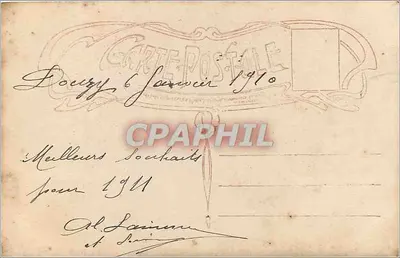 CARTE POSTALE
Douzy 6 Janvier 1910
CPAPHIL
Meilleurs Souhaits
pour 1911
et